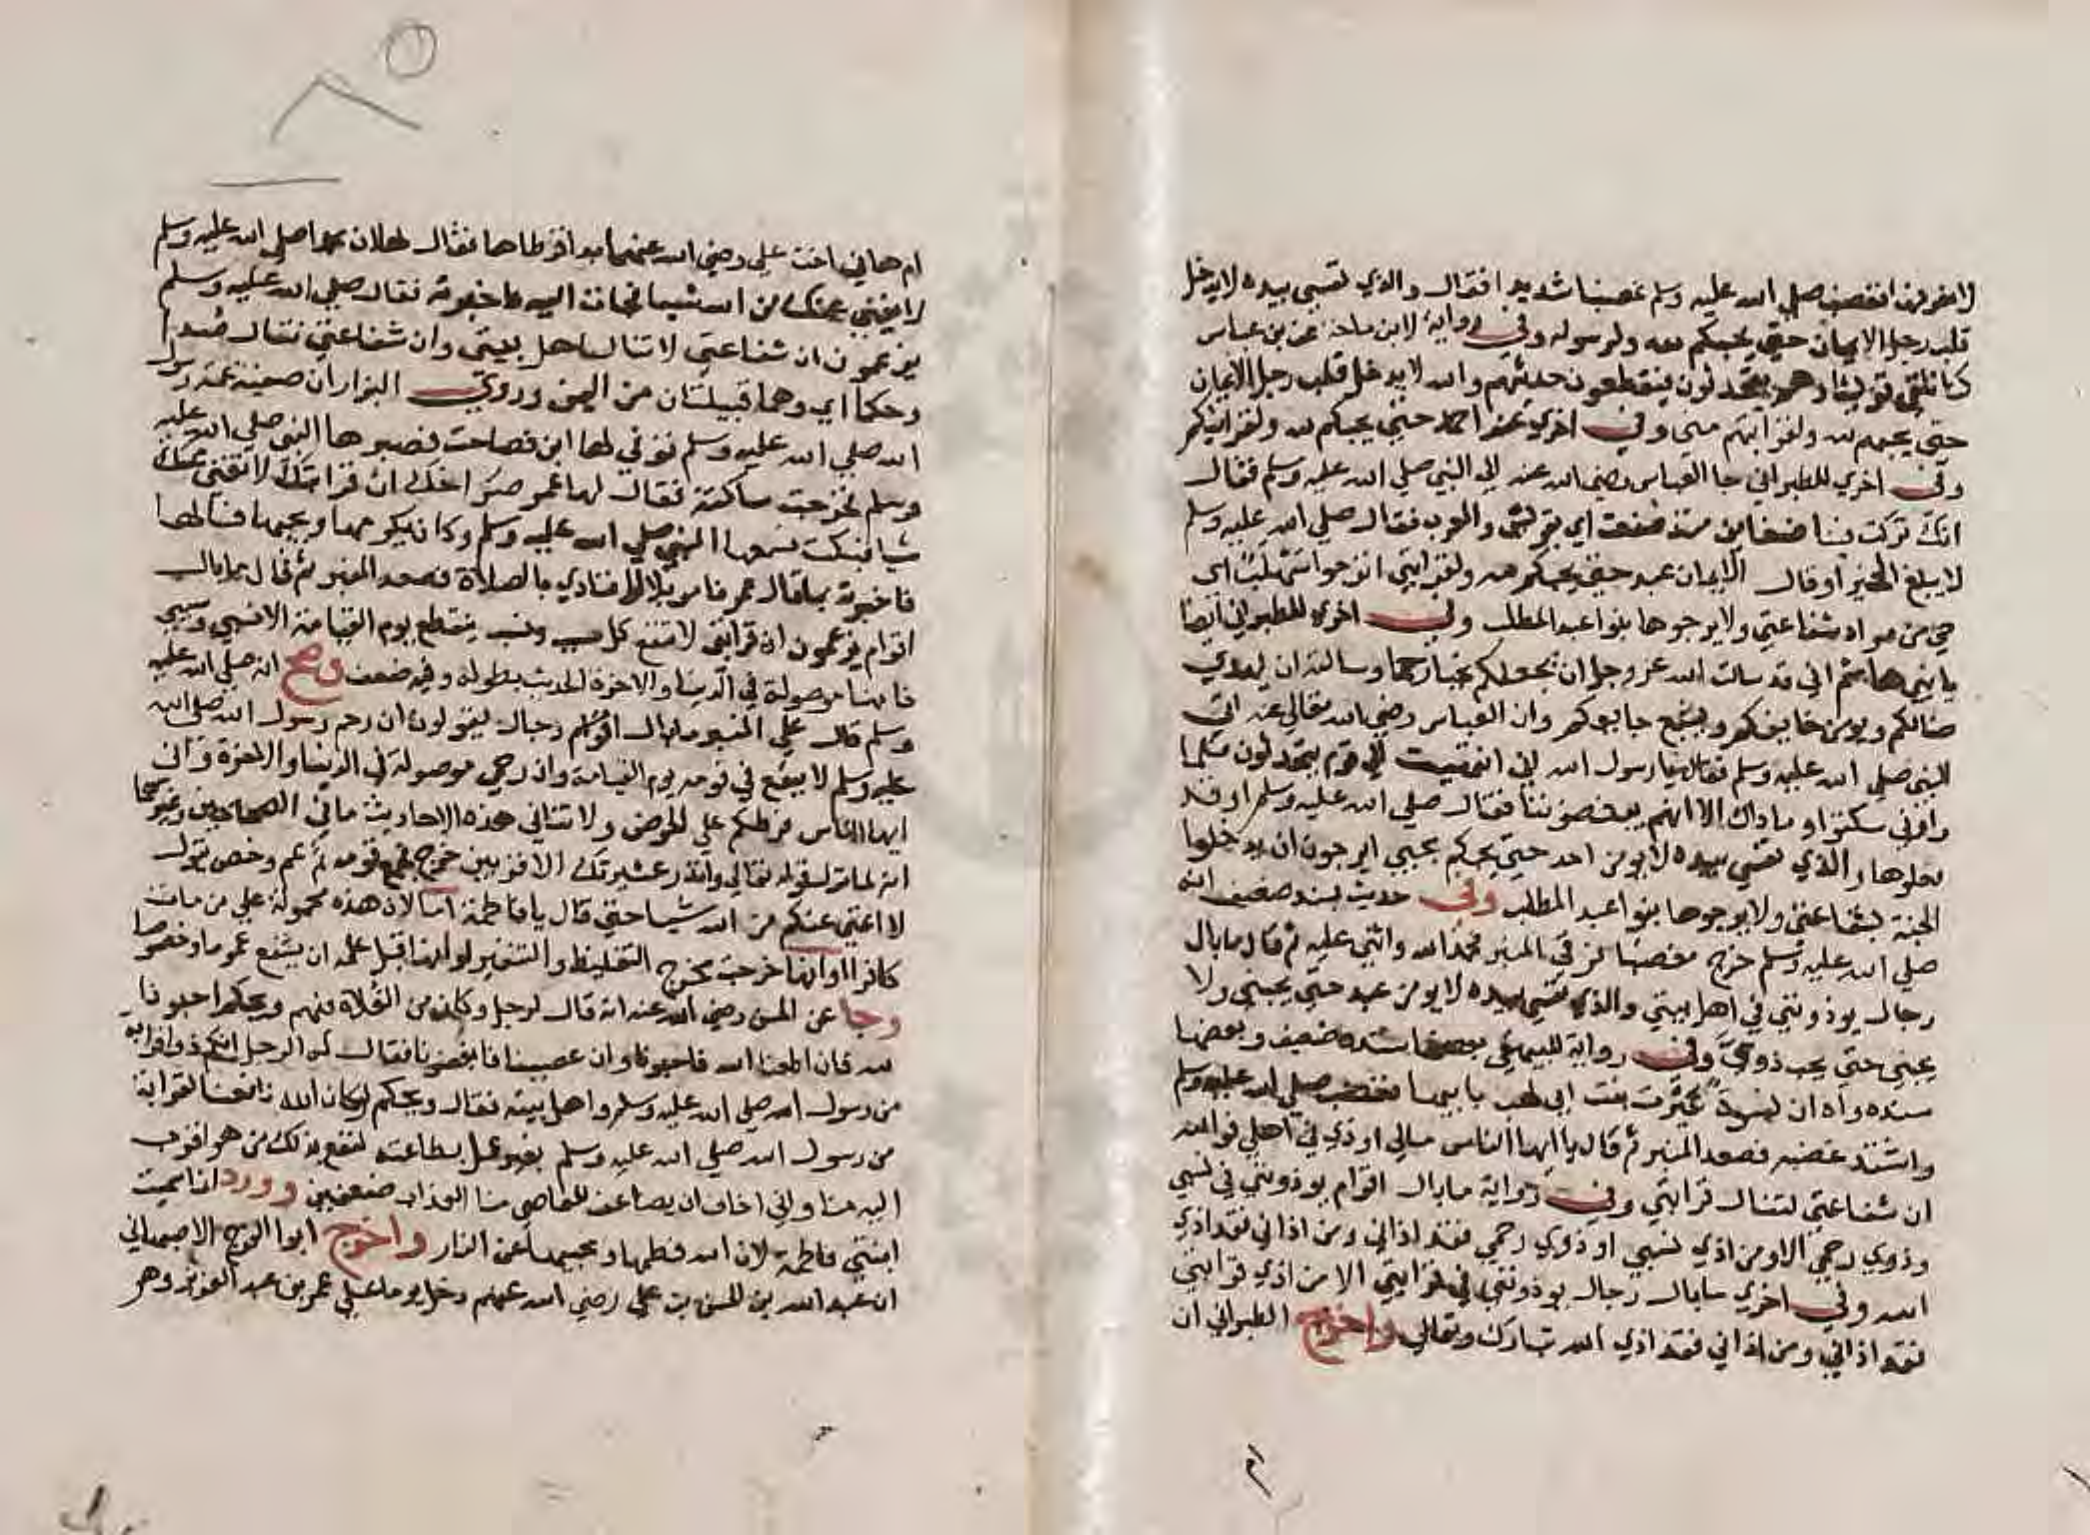 لا نعرفها فغضب صلي الله عليه وسلم غضبا شديدا فقال والذي نفسي بيده لا يدخل
قلب رجل الايمان حتي يحبكم لله ولرسوله وفي رواية لابن ماجة عن بن عباس
كنا نلقي قريشا وهم يتحدثون فيقطعون حديثهم والله لا يدخل قلب رجل الايمان
حتي يحبهم لله ولقرابتهم مني وفي اخري عند احمد حتي يحبكم لله ولقرابتكم
وفي اخري للطبراني جا العباس رضي الله عنه الي النبي صلي الله عليه وسلم فقال
انك تركت فينا ضغاين منذ صنعت اي بقريش والعرب فقال صلي الله عليه وسلم
لا يبلغ الخير او قال الايمان عبد حتي يحبكم لله ولقرابتي اترجوا سلهب اي
حي من مراد شفاعتي ولا يرجوها بنوا عبد المطلب وفي اخري للطبراني ايضا
يا بني هاشم اني قد سالت الله عز وجل ان يجعلكم نجبا رحما وسالته ان يهدي
ضالكم ويومن خايفكم ويشبع جايعكم وان العباس رضي الله تعالي عنه اتي
النبي صلي الله عليه وسلم فقال يا رسول الله اني انتهيت الي قوم يتحدثون فلما
راوني سكتوا وما ذاك الا انهم يبغضوننا فقال صلي الله عليه وسلم او قد
فعلوها والذي نفسي بيده لا يومن احد حتي يحبكم بحبي ايرجون ان يدخلوا
الجنة بشفاعتي ولا يرجوها بنوا عبد المطلب وفي حديث بسند ضعيف انه
صلي الله عليه وسلم خرج مغضبا فرقي المنبر فحمد الله واثني عليه ثم قال ما بال
رجال يوذونني في اهل بيتي والذي نفسي بيده لا يومن عبد حتي يحبني ولا
يحبني حتي يحب ذوي وفي رواية للبيهقي بعضها سنده ضعيف وبعضها
سنده واه ان نسوة عيرت بنت ابي لهب بابيها فغضب صلي الله عليه وسلم
واشتد غضبه فصعد المنبر ثم قال يا ايها الناس مالي اوذي في اهلي فوالله
ان شفاعتي لتنال قرابتي وفي رواية ما بال اقوام يوذونني في نسبي
وذوي رحمي الا ومن اذي نسبي او ذوي رحمي فقد اذاني ومن اذاني فقد اذي
الله وفي اخري ما بال رجال يوذونني في قرابتي الا من اذي قرابتي
فقد اذاني ومن اذاني فقد اذي الله تبارك وتعالي واخرج الطبراني ان
ام
ام هاني اخت علي رضي الله عنهما بدا قرطاها فقال لها ان محمدا صلي الله عليه وسلم
لا يغني عنك من الله شيا فجات اليه فاخبرته فقال صلي الله عليه وسلم
يزعمون ان شفاعتي لا تنال اهل بيتي وان شفاعتي تنال صدا
وحكما اي وهما قبيلتان من اليمن وروي البزار ان صفية عمة رسول
الله صلي الله عليه وسلم توفي لها ابن فصاحت فصبرها النبي صلي الله عليه
وسلم فخرجت ساكتة فقال لها عمر صراخك ان قرابتك لا تغني عنك
شيا فبكت فسمعها النبي صلي الله عليه وسلم وكان يكرمها ويحبها فسالها
فاخبرته بما قال عمر فامر بلالا فنادي بالصلاة فصعد المنبر ثم قال ما بال
اقوام يزعمون ان قرابتي لا تنفع كل سبب ونسب ينقطع يوم القيامة الا نسبي وسببي
فانها موصولة في الدنيا والاخرة الحديث بطوله وفيه ضعف وصح انه صلي الله عليه
وسلم قال علي المنبر ما بال اقوام رجال يقولون ان رحم رسول الله صلي الله
عليه وسلم لا ينفع في قومه يوم القيامة وان رحمي موصولة في الدنيا والاخرة واني
ايها الناس فرطكم علي الحوض ولا تنافي هذه الاحاديث ما في الصحيحين وغيرهما
انه لما نزل قوله تعالي وانذر عشيرتك الاقربين خرج فجمع قومه ثم عم وخص بقوله
لا اغني عنكم من الله شيا حتي قال يا فاطمة اما لان هذه محمولة علي من مات
كافرا او انها خرجت مخرج التغليظ والتنفير او انها قبل علمه ان يشفع عموما وخصوصا
وجا عن الحسن رضي الله عنه انه قال لرجل وكان من الغلاة فيهم ويحكم احبونا
لله فان اطعنا الله فاحبونا وان عصينا فابغضونا فقال له الرجل انكم ذوا قرابة
من رسول الله صلي الله عليه وسلم واهل بيته فقال ويحكم لو كان الله نافعنا لقرابة
من رسول الله صلي الله عليه وسلم بغير عمل بطاعته لنفع بذلك من هو اقرب
اليه منا واني اخاف ان يضاعف للعاصي منا العذاب ضعفين وورد انما سميت
ابنتي فاطمة لان الله فطمها ومحبيها عن النار واخرج ابوا الفرج الاصبهاني
ان عبد الله بن الحسن بن علي رضي الله عنهم دخل يوما علي عمر بن عبد العزيز وهو